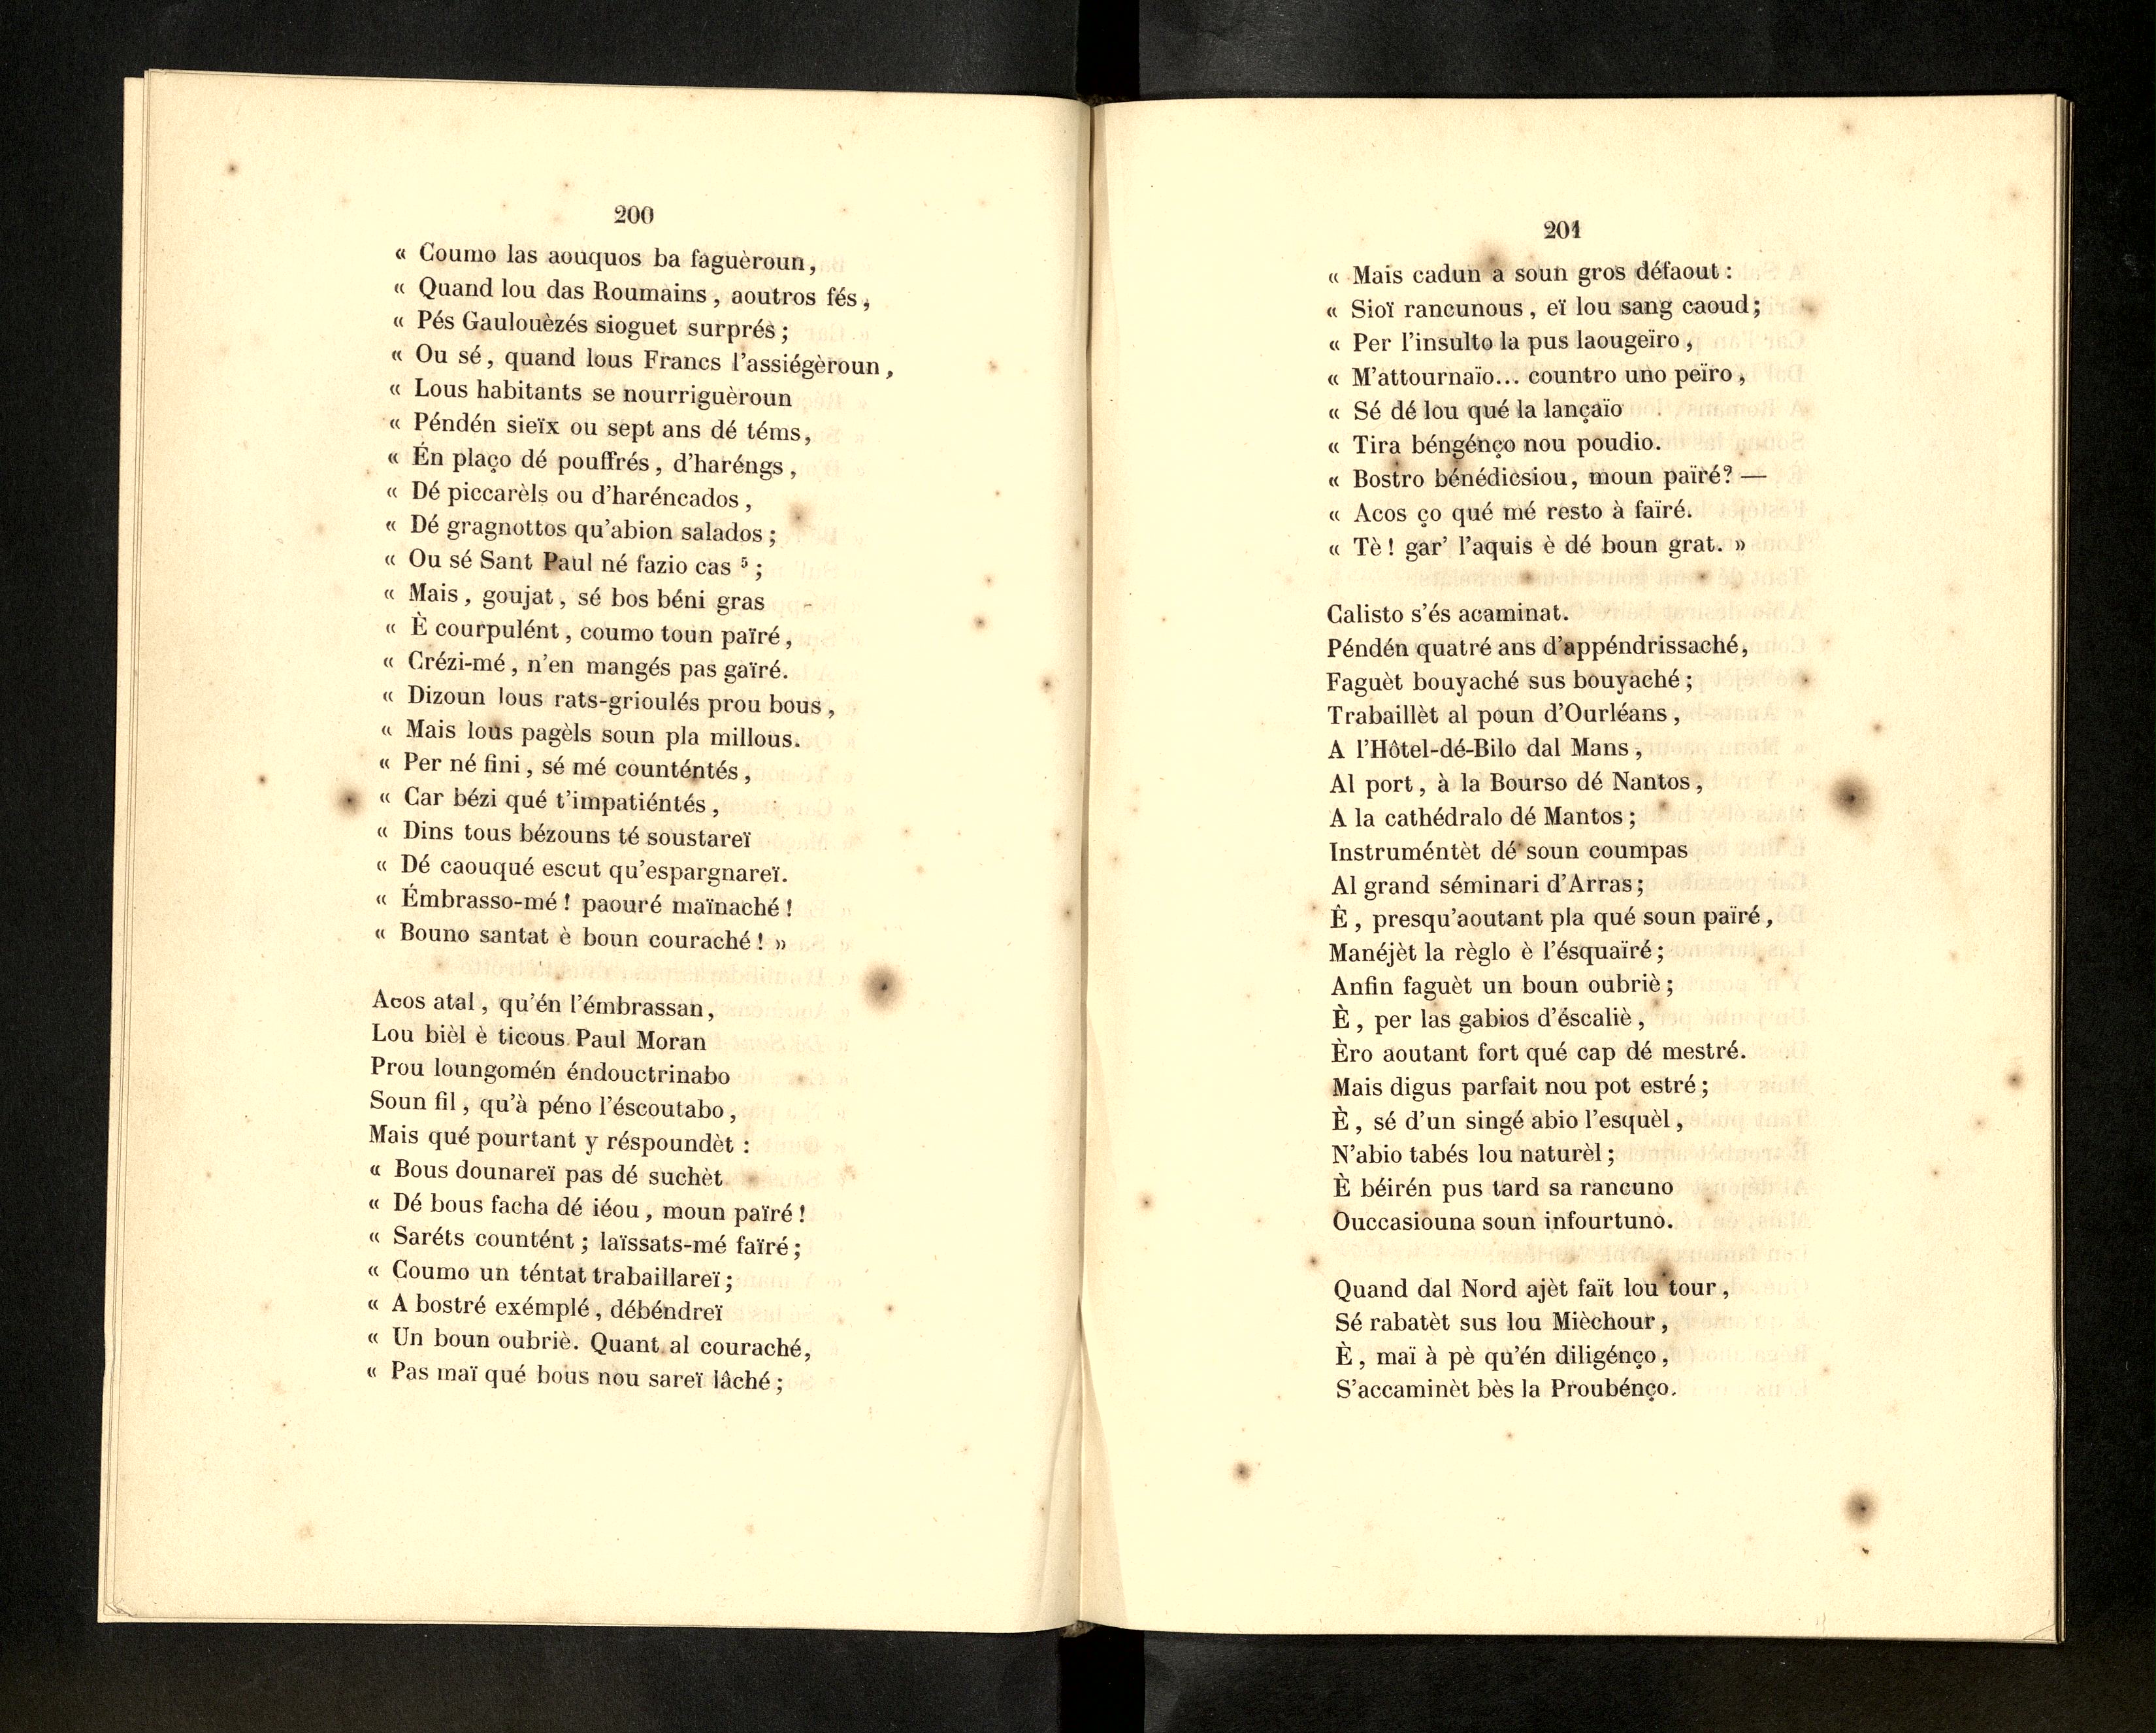 200
« Coumo las aouquos ba faguèroun,
« Quand lou das Roumains, aoutros fés,
« Pés Gaulouèzés sioguet surprés;
« Ou sé, quand lous Francs l'assiégèroun,
« Lous habitants se nourriguèroun
« Péndén sieïx ou sept ans dé téms,
« Én plaço dé pouffrés, d'haréngs,
« Dé piccarèls ou d'haréncados,
« Dé gragnottos qu'abion salados;
« Ou sé Sant Paul né fazio cas ⁵;
« Mais, goujat, sé bos béni gras
« È courpulént, coumo toun païré,
« Crézi-mé, n'en mangés pas gaïré.
« Dizoun lous rats-grioulés prou bous,
« Mais lous pagèls soun pla millous.
« Per né fini, sé mé counténtés,
« Car bézi qué t'impatiéntés,
« Dins tous bézouns té soustareï
« Dé caouqué escut qu'espargnareï.
« Émbrasso-mé! paouré maïnaché!
« Bouno santat è boun couraché! »
Acos atal, qu'én l'émbrassan,
Lou bièl è ticous Paul Moran
Prou loungomén éndouctrinabo
Soun fil, qu'à péno l'éscoutabo,
Mais qué pourtant y réspoundèt :
« Bous dounareï pas dé suchèt
« Dé bous facha dé iéou, moun païré!
« Saréts countént; laïssats-mé faïré;
« Coumo un téntat trabaillareï;
« A bostré exémplé, débéndreï
« Un boun oubriè. Quant al couraché,
« Pas maï qué bous nou sareï lâché;
201
« Mais cadun a soun gros défaout :
« Sioï rancunous, eï lou sang caoud;
« Per l'insulto la pus laougeïro,
« M'attournaïo... countro uno peïro,
« Sé dé lou qué la lançaïo
« Tira béngénço nou poudio.
« Bostro bénédicsiou, moun païré? —
« Acos ço qué mé resto à faïré.
« Tè! gar' l'aquis è dé boun grat. »
Calisto s'és acaminat.
Péndén quatré ans d'appéndrissaché,
Faguèt bouyaché sus bouyaché;
Trabaillèt al poun d'Ourléans,
A l'Hôtel-dé-Bilo dal Mans,
Al port, à la Bourso dé Nantos,
A la cathédralo dé Mantos;
Instruméntèt dé soun coumpas
Al grand séminari d'Arras;
Ê, presqu'aoutant pla qué soun païré,
Manéjèt la règlo è l'ésquaïré;
Anfin faguèt un boun oubriè;
È, per las gabios d'éscaliè,
Èro aoutant fort qué cap dé mestré.
Mais digus parfait nou pot estré;
È, sé d'un singé abio l'esquèl,
N'abio tabés lou naturèl;
È béirén pus tard sa rancuno
Ouccasiouna soun infourtuno.
Quand dal Nord ajèt faït lou tour,
Sé rabatèt sus lou Mièchour,
È, maï à pè qu'én diligénço,
S'accaminèt bès la Proubénço.